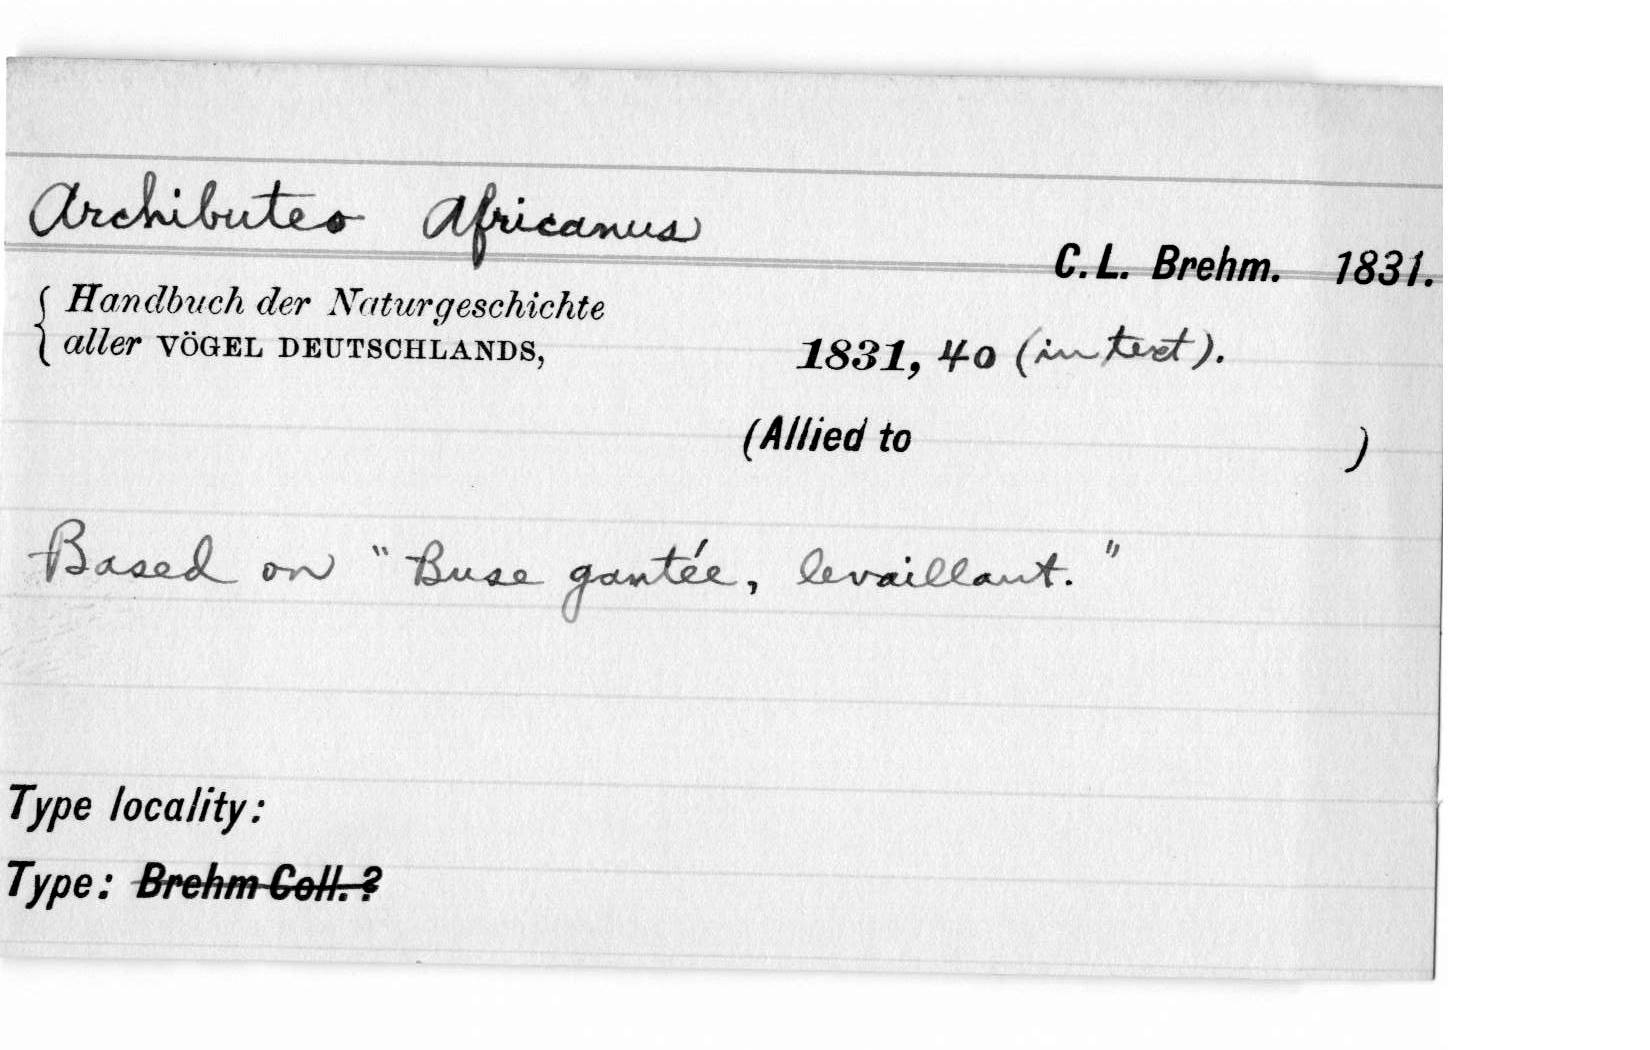 Archibuteo Africanus
C. L. Brehm. 1831.
Handbuch der Naturgeschichte
aller VÖGEL DEUTSCHLANDS, 1831, 40 (in text).
(Allied to )
Based on "Buse gantée, levaillant."
Type locality:
Type: Brehm Coll. ?